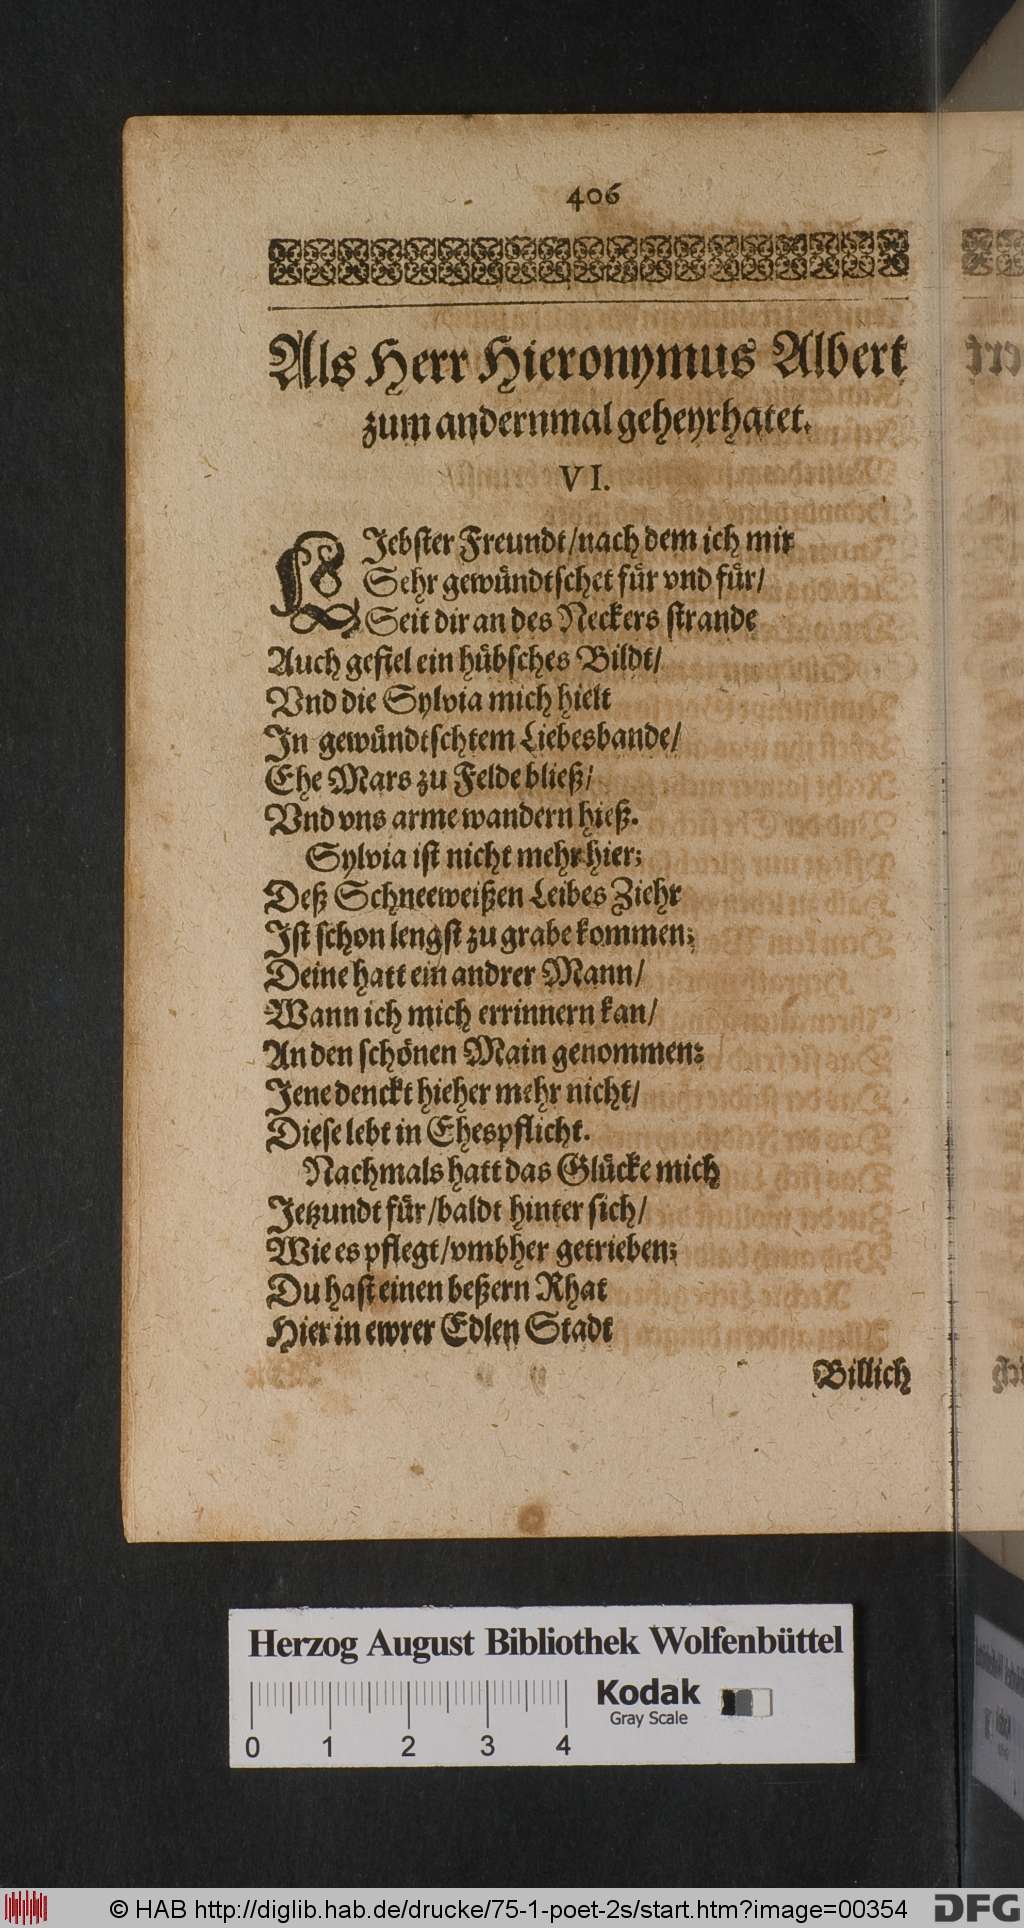 406
Als Herr Hieronymus Albert
zum andernmal geheyrhatet.
VI.
LJebster Freundt/nach dem ich mir
Sehr gewündtschet für vnd für/
Seit dir an des Neckers strande
Auch gefiel ein hübsches Bildt/
Vnd die Sylvia mich hielt
In gewündtschtem Liebesbande/
Ehe Mars zu Felde bließ/
Vnd vns arme wandern hieß.
Sylvia ist nicht mehr hier;
Deß Schneeweißen Leibes Ziehr
Ist schon lengst zu grabe kommen;
Deine hatt ein andrer Mann/
Wann ich mich errinnern kan/
An den schönen Main genommen;
Jene denckt hieher mehr nicht/
Diese lebt in Ehespflicht.
Nachmals hatt das Glücke mich
Jetzundt für/baldt hinter sich/
Wie es pflegt/vmbher getrieben;
Du hast einen beßern Rhat
Hier in ewrer Edlen Stadt
Billich
Herzog August Bibliothek Wolfenbüttel
Kodak
Gray Scale
0 1 2 3 4
© HAB http://diglib.hab.de/drucke/75-1-poet-2s/start.htm?image=00354
DFG